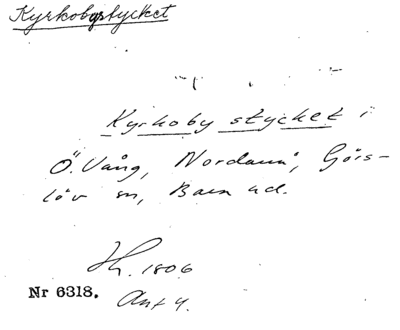 Kyrkobystycket
Kyrkoby stycket i
Ö. Vång, Nordanå, Görs-
löv sn, Bara hd.
Jh. 1806
Nr 6318. Akt 4.